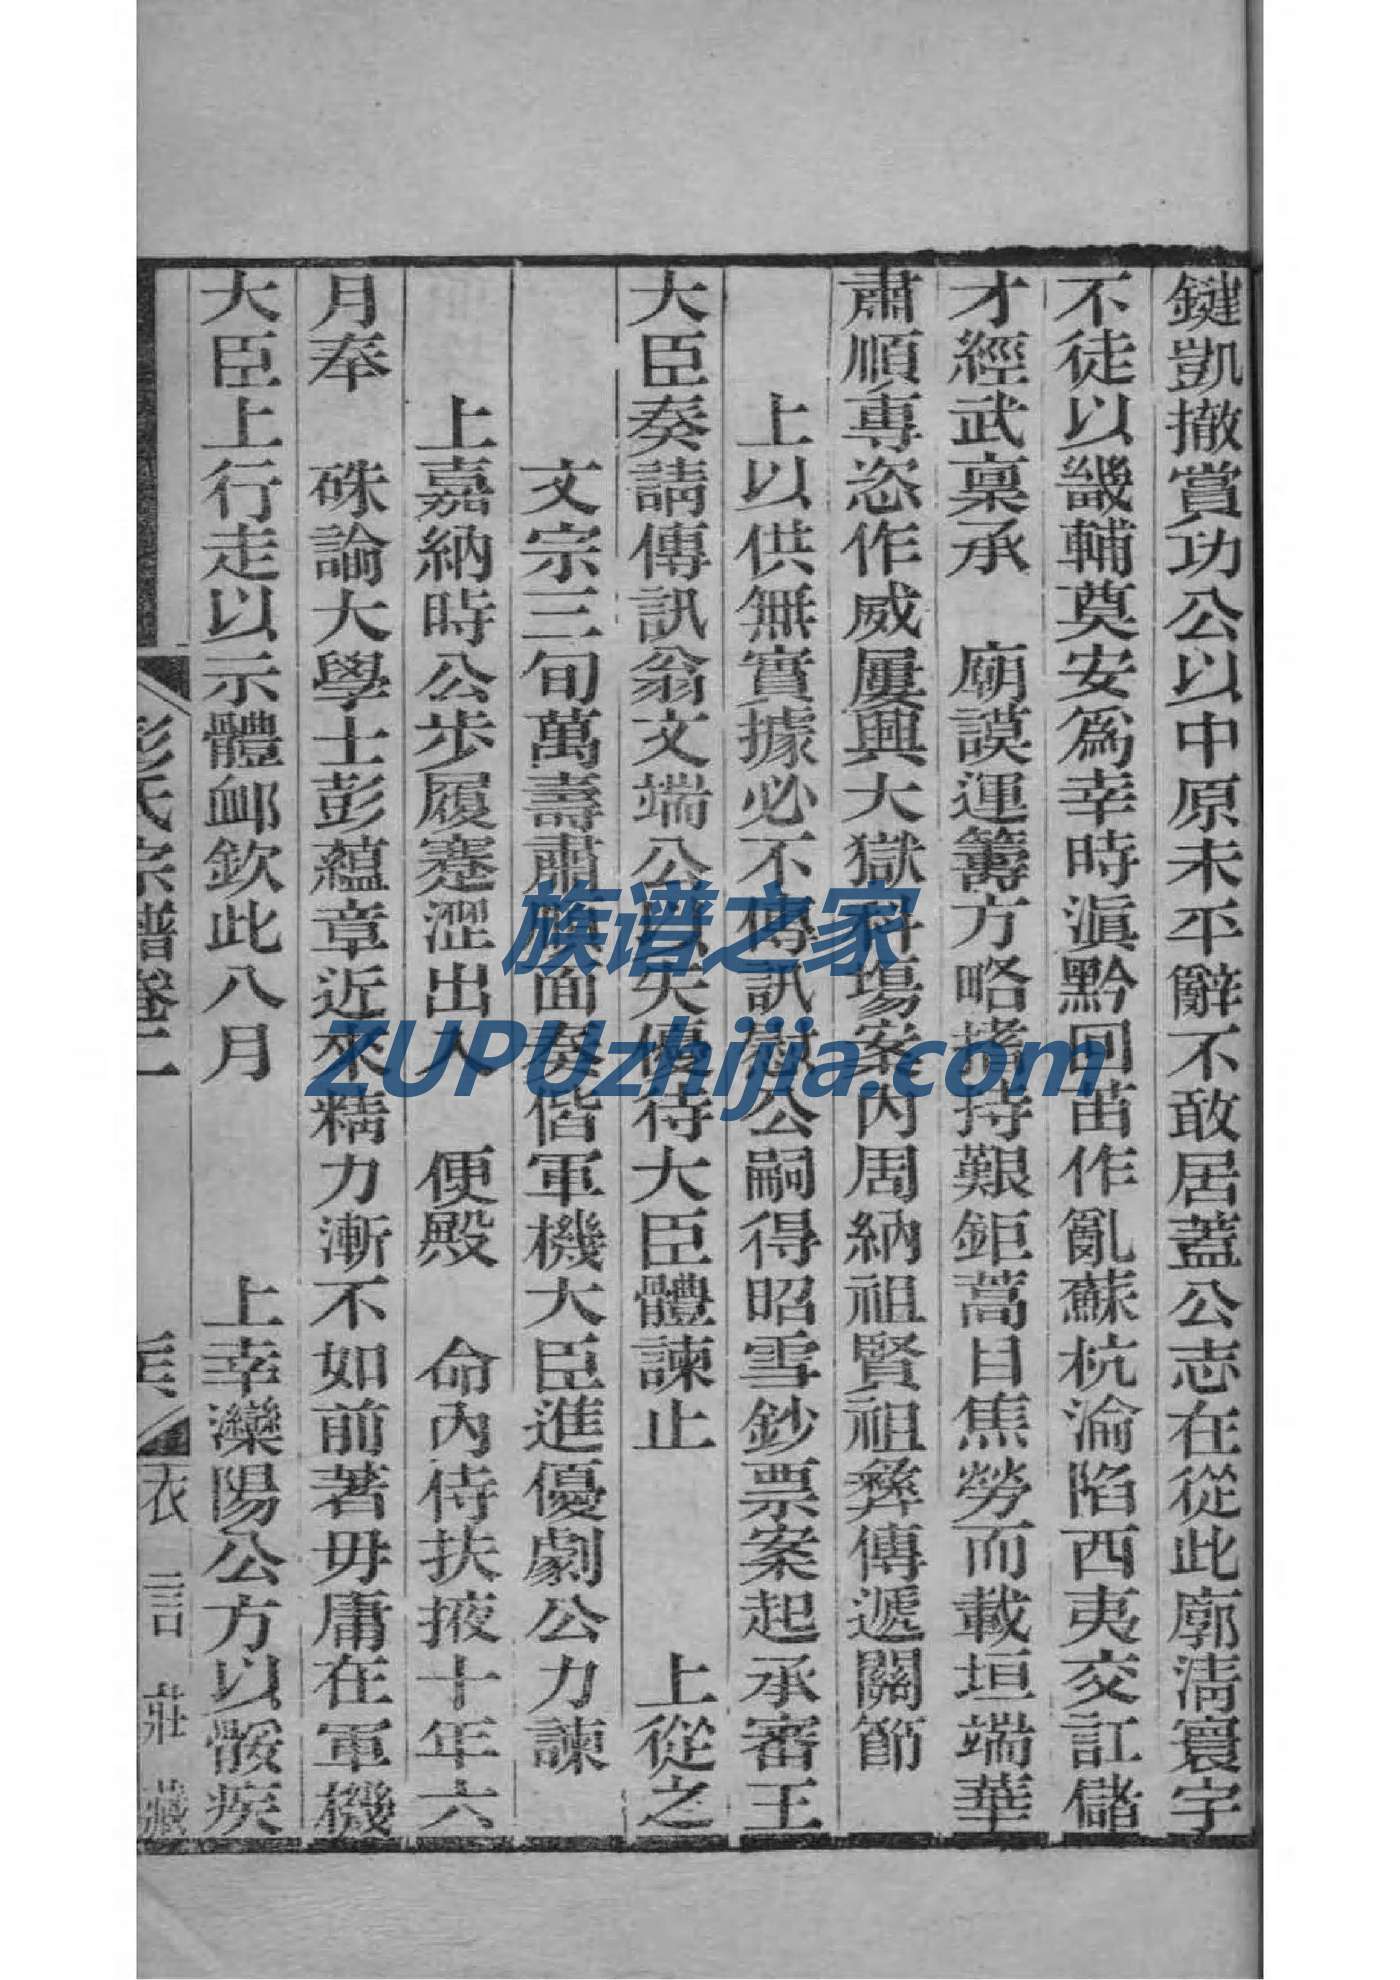 鍵凱撤賞功公以中原未平辭不敢居蓋公志在從此廓淸寰宇
不徒以畿輔奠安爲幸時滇黔回苗作亂蘇杭淪陷西夷交訌儲
才經武稟承　廟謨運籌方略搘持艱鉅蒿目焦勞而載垣端華
肅順專恣作威屢興大獄科塲案內周納祖賢祖彝傳遞關節
上以供無實據必不傳訊慰公嗣得昭雪鈔票案起承審王
大臣奏請傳訊翁文端公以失優待大臣體諫止　上從之
文宗三旬萬壽肅順面奏偕軍機大臣進優劇公力諫
上嘉納時公步履蹇澀出入　便殿　命內侍扶掖十年六
月奉　硃諭大學士彭蘊章近來精力漸不如前著毋庸在軍機
大臣上行走以示體卹欽此八月　上幸灤陽公方以骽疾
彭氏宗譜卷二
衣言莊藏
族谱之家
ZUPUzhijia.com